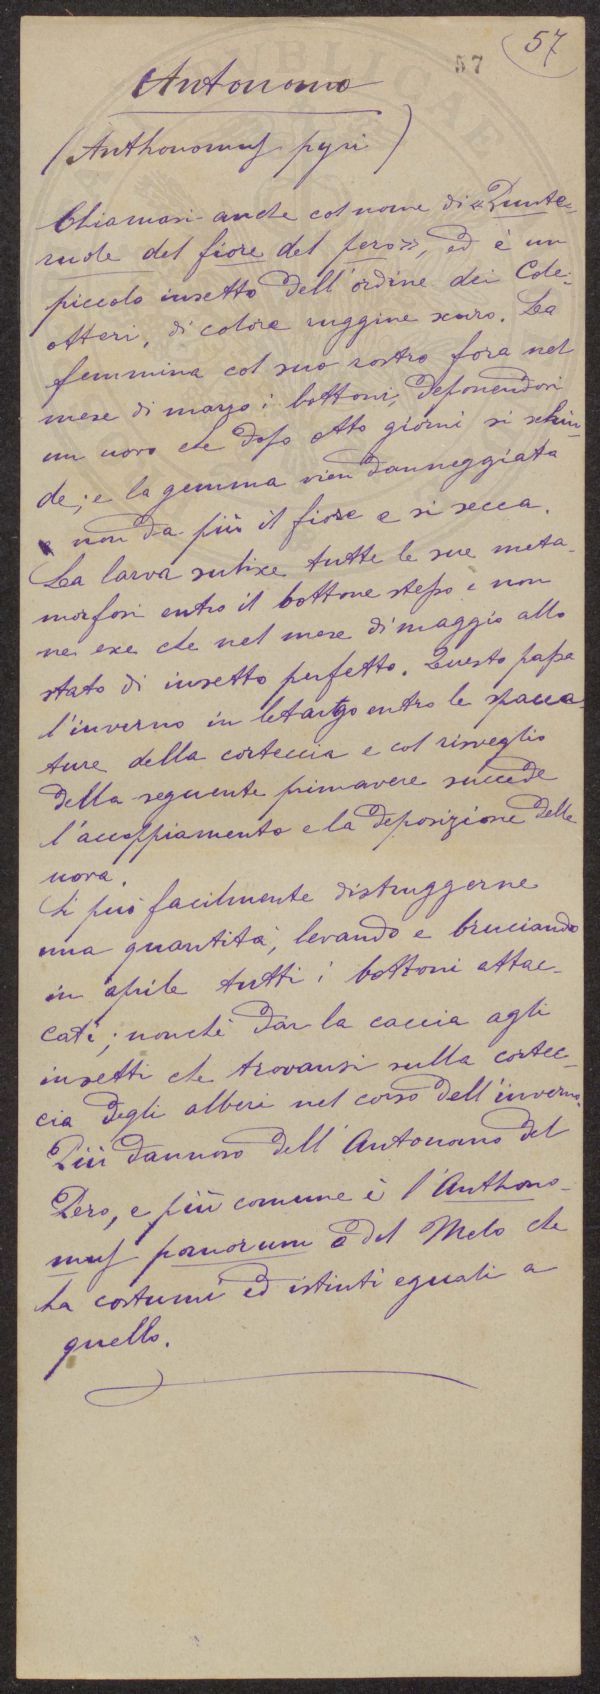 57
57
Antonomo
(Anthonomus pyri)
Chiamasi anche col nome di «Punte-
ruole del fiore del pero», ed è un
piccolo insetto dell'ordine dei Cole-
otteri, di colore ruggine scuro. La
femmina col suo rostro fora nel
mese di marzo i bottoni, deponendovi
un uovo che dopo otto giorni si schiu-
de; e la gemma vien danneggiata
e non da più il fiore e si secca.
La larva subisce tutte le sue meta-
morfosi entro il bottone stesso e non
ne esce che nel mese di maggio allo
stato di insetto perfetto. Questo passa
l'inverno in letargo entro le spacca-
ture della corteccia e col risveglio
della seguente primavere succede
l'accoppiamento e la deposizione delle
uova.
Si può facilmente distruggerne
una quantità, levando e bruciando
in aprile tutti i bottoni attac-
cati; nonchè dar la caccia agli
insetti che trovansi sulla cortec-
cia degli alberi nel corso dell'inverno.
Più dannoso dell'Antonomo del
Pero, e più comune è l'Anthono-
mus pomorum o del Melo che
ha costumi ed istinti eguali a
quello.